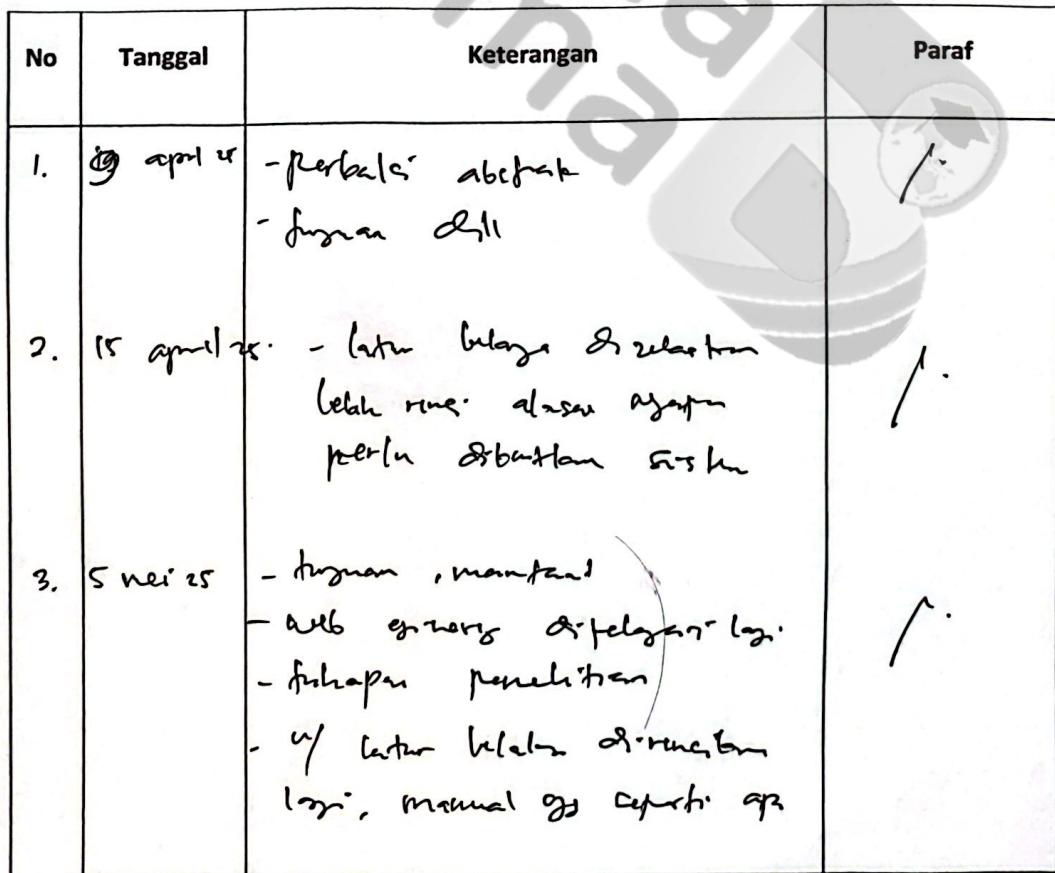 No Tanggal Keterangan Paraf
1. april 25 - perbaiki abstrak
- tujuan dll
2. 15 april 25. - latar belakang dijelaskan
lebih rinci alasan
perlu dibuatkan sistem
3. 5 mei 25 - tujuan, manfaat
- web dipelajari lagi.
- tahapan penelitian
- u/ latar belakang
lagi, manual yg seperti apa